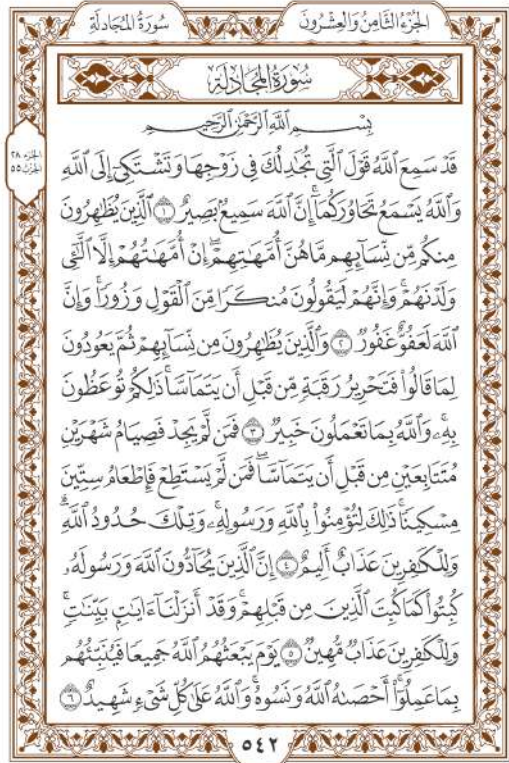 الجُزْءُ الثَّامِنُ وَالعِشْرُونَ
سُورَةُ المُجَادلَةِ
سُورَةُ المُجَادلَةِ
بِسْمِ ٱللَّهِ ٱلرَّحْمَٰنِ ٱلرَّحِيمِ
الجزء ٢٨
الحزب ٥٥
قَدْ سَمِعَ ٱللَّهُ قَوْلَ ٱلَّتِي تُجَٰدِلُكَ فِي زَوْجِهَا وَتَشْتَكِيٓ إِلَى ٱللَّهِ
وَٱللَّهُ يَسْمَعُ تَحَاوُرَكُمَآۚ إِنَّ ٱللَّهَ سَمِيعٌۢ بَصِيرٌ ١ ٱلَّذِينَ يُظَٰهِرُونَ
مِنكُم مِّن نِّسَآئِهِم مَّا هُنَّ أُمَّهَٰتِهِمْۖ إِنْ أُمَّهَٰتُهُمْ إِلَّا ٱلَّٰٓـِٔي
وَلَدْنَهُمْۚ وَإِنَّهُمْ لَيَقُولُونَ مُنكَرًا مِّنَ ٱلْقَوْلِ وَزُورًاۚ وَإِنَّ
ٱللَّهَ لَعَفُوٌّ غَفُورٌ ٢ وَٱلَّذِينَ يُظَٰهِرُونَ مِن نِّسَآئِهِمْ ثُمَّ يَعُودُونَ
لِمَا قَالُوا۟ فَتَحْرِيرُ رَقَبَةٍ مِّن قَبْلِ أَن يَتَمَآسَّاۚ ذَٰلِكُمْ تُوعَظُونَ
بِهِۦۚ وَٱللَّهُ بِمَا تَعْمَلُونَ خَبِيرٌ ٣ فَمَن لَّمْ يَجِدْ فَصِيَامُ شَهْرَيْنِ
مُتَتَابِعَيْنِ مِن قَبْلِ أَن يَتَمَآسَّاۖ فَمَن لَّمْ يَسْتَطِعْ فَإِطْعَامُ سِتِّينَ
مِسْكِينًاۚ ذَٰلِكَ لِتُؤْمِنُوا۟ بِٱللَّهِ وَرَسُولِهِۦۚ وَتِلْكَ حُدُودُ ٱللَّهِۗ
وَلِلْكَٰفِرِينَ عَذَابٌ أَلِيمٌ ٤ إِنَّ ٱلَّذِينَ يُحَآدُّونَ ٱللَّهَ وَرَسُولَهُۥ
كُبِتُوا۟ كَمَا كُبِتَ ٱلَّذِينَ مِن قَبْلِهِمْۚ وَقَدْ أَنزَلْنَآ ءَايَٰتٍۭ بَيِّنَٰتٍۚ
وَلِلْكَٰفِرِينَ عَذَابٌ مُّهِينٌ ٥ يَوْمَ يَبْعَثُهُمُ ٱللَّهُ جَمِيعًا فَيُنَبِّئُهُم
بِمَا عَمِلُوٓا۟ۚ أَحْصَىٰهُ ٱللَّهُ وَنَسُوهُۚ وَٱللَّهُ عَلَىٰ كُلِّ شَيْءٍ شَهِيدٌ ٦
٥٤٢